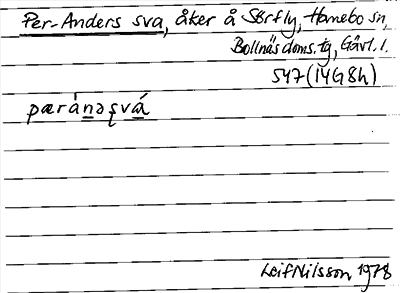 Per-Anders sva, åker å Sörfly, Hanebo sn,
Bollnäs doms. tg, Gävl. l.
547 (14G8h)
pæránəʂvá
Leif Nilsson 1978